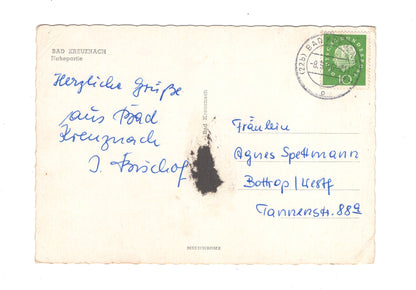 BAD KREUZNACH
Nahepartie
Herzliche Grüße
aus Bad
Kreuznach
J. Bischof
Bad Kreuznach
(22b) BAD
Fräulein
Agnes Spettmann
Bottrop/Westf
Tannenstr. 88a
10